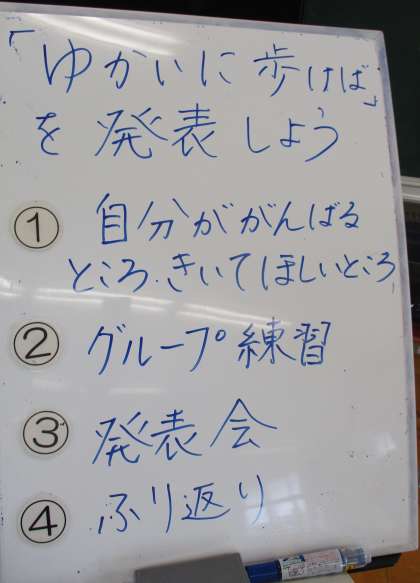 「ゆかいに歩けば」
を発表しよう
① 自分ががんばる
ところ、きいてほしいところ
② グループ練習
③ 発表会
④ ふり返り